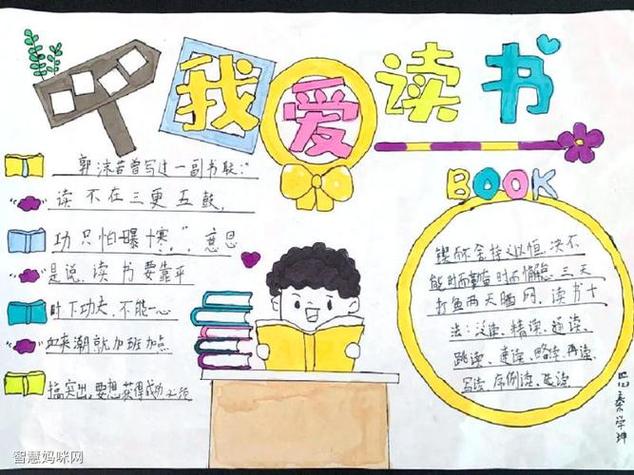 我爱读书
郭沫若曾写过一副书联:"
读不在三更五鼓,
功只怕一曝十寒,",意思
是说,读书要靠平
时下功夫,不能一心
血来潮就加班加点
搞突出,要想获得成功必须
BOOK
锲而舍持之以恒,决不
能时而勤奋时而懒怠三天
打鱼两天晒网,读书十
法:泛读、精读、通读、
跳读、速读、略读、再读、
写读、序例读、选读、
四(2)秦学坤
智慧妈咪网